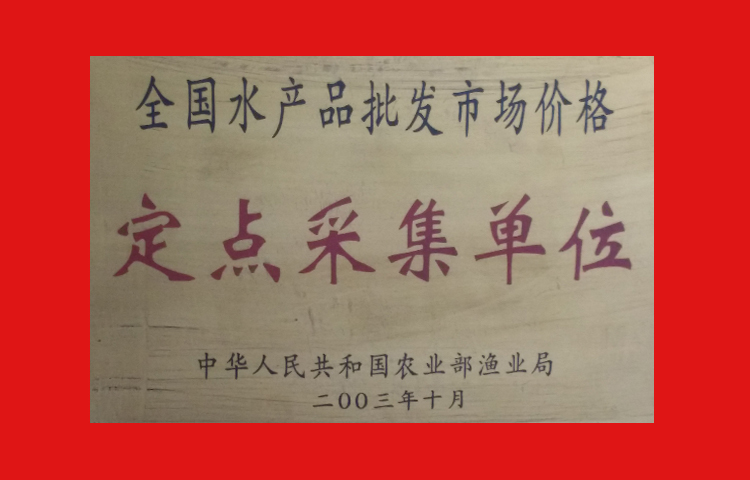 全国水产品批发市场价格
定点采集单位
中华人民共和国农业部渔业局
二OO三年十月